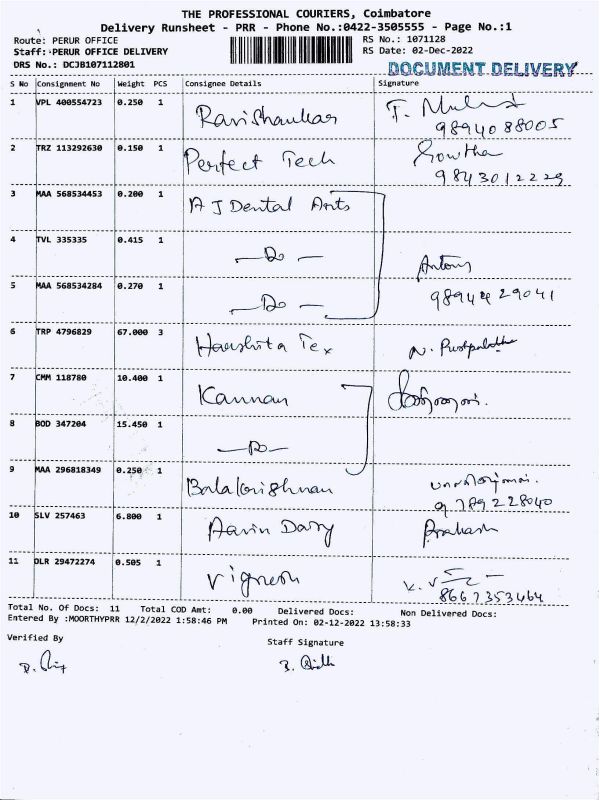 THE PROFESSIONAL COURIERS, Coimbatore
Delivery Runsheet - PRR - Phone No.:0422-3505555 - Page No.:1
Route: PERUR OFFICE
RS No.: 1071128
Staff: PERUR OFFICE DELIVERY
RS Date: 02-Dec-2022
DRS No.: DCJB107112801
DOCUMENT DELIVERY
S No Consignment No Weight PCS Consignee Details Signature
1 VPL 400554723 0.250 1 Ravishankar
9894088005
2 TRZ 113292630 0.150 1 Perfect Tech Gowtham
9843012229
3 MAA 568534453 0.200 1 A J Dental Arts
4 TVL 335335 0.415 1 —Do— Antony
5 MAA 568534284 0.270 1 —Do—
6 TRP 4796829 67.000 3 Harshita Tex
7 CMM 118780 10.400 1 Kannan
8 BOD 347204 15.450 1 —Do—
9 MAA 296818349 0.250 1 Balakrishnan
9789228040
10 SLV 257463 6.800 1 Aavin Dary Prakash
11 DLR 29472274 0.505 1 Vignesh
8667353464
Total No. Of Docs: 11 Total COD Amt: 0.00 Delivered Docs: Non Delivered Docs:
Entered By :MOORTHYPRR 12/2/2022 1:58:46 PM Printed On: 02-12-2022 13:58:33
Verified By
Staff Signature